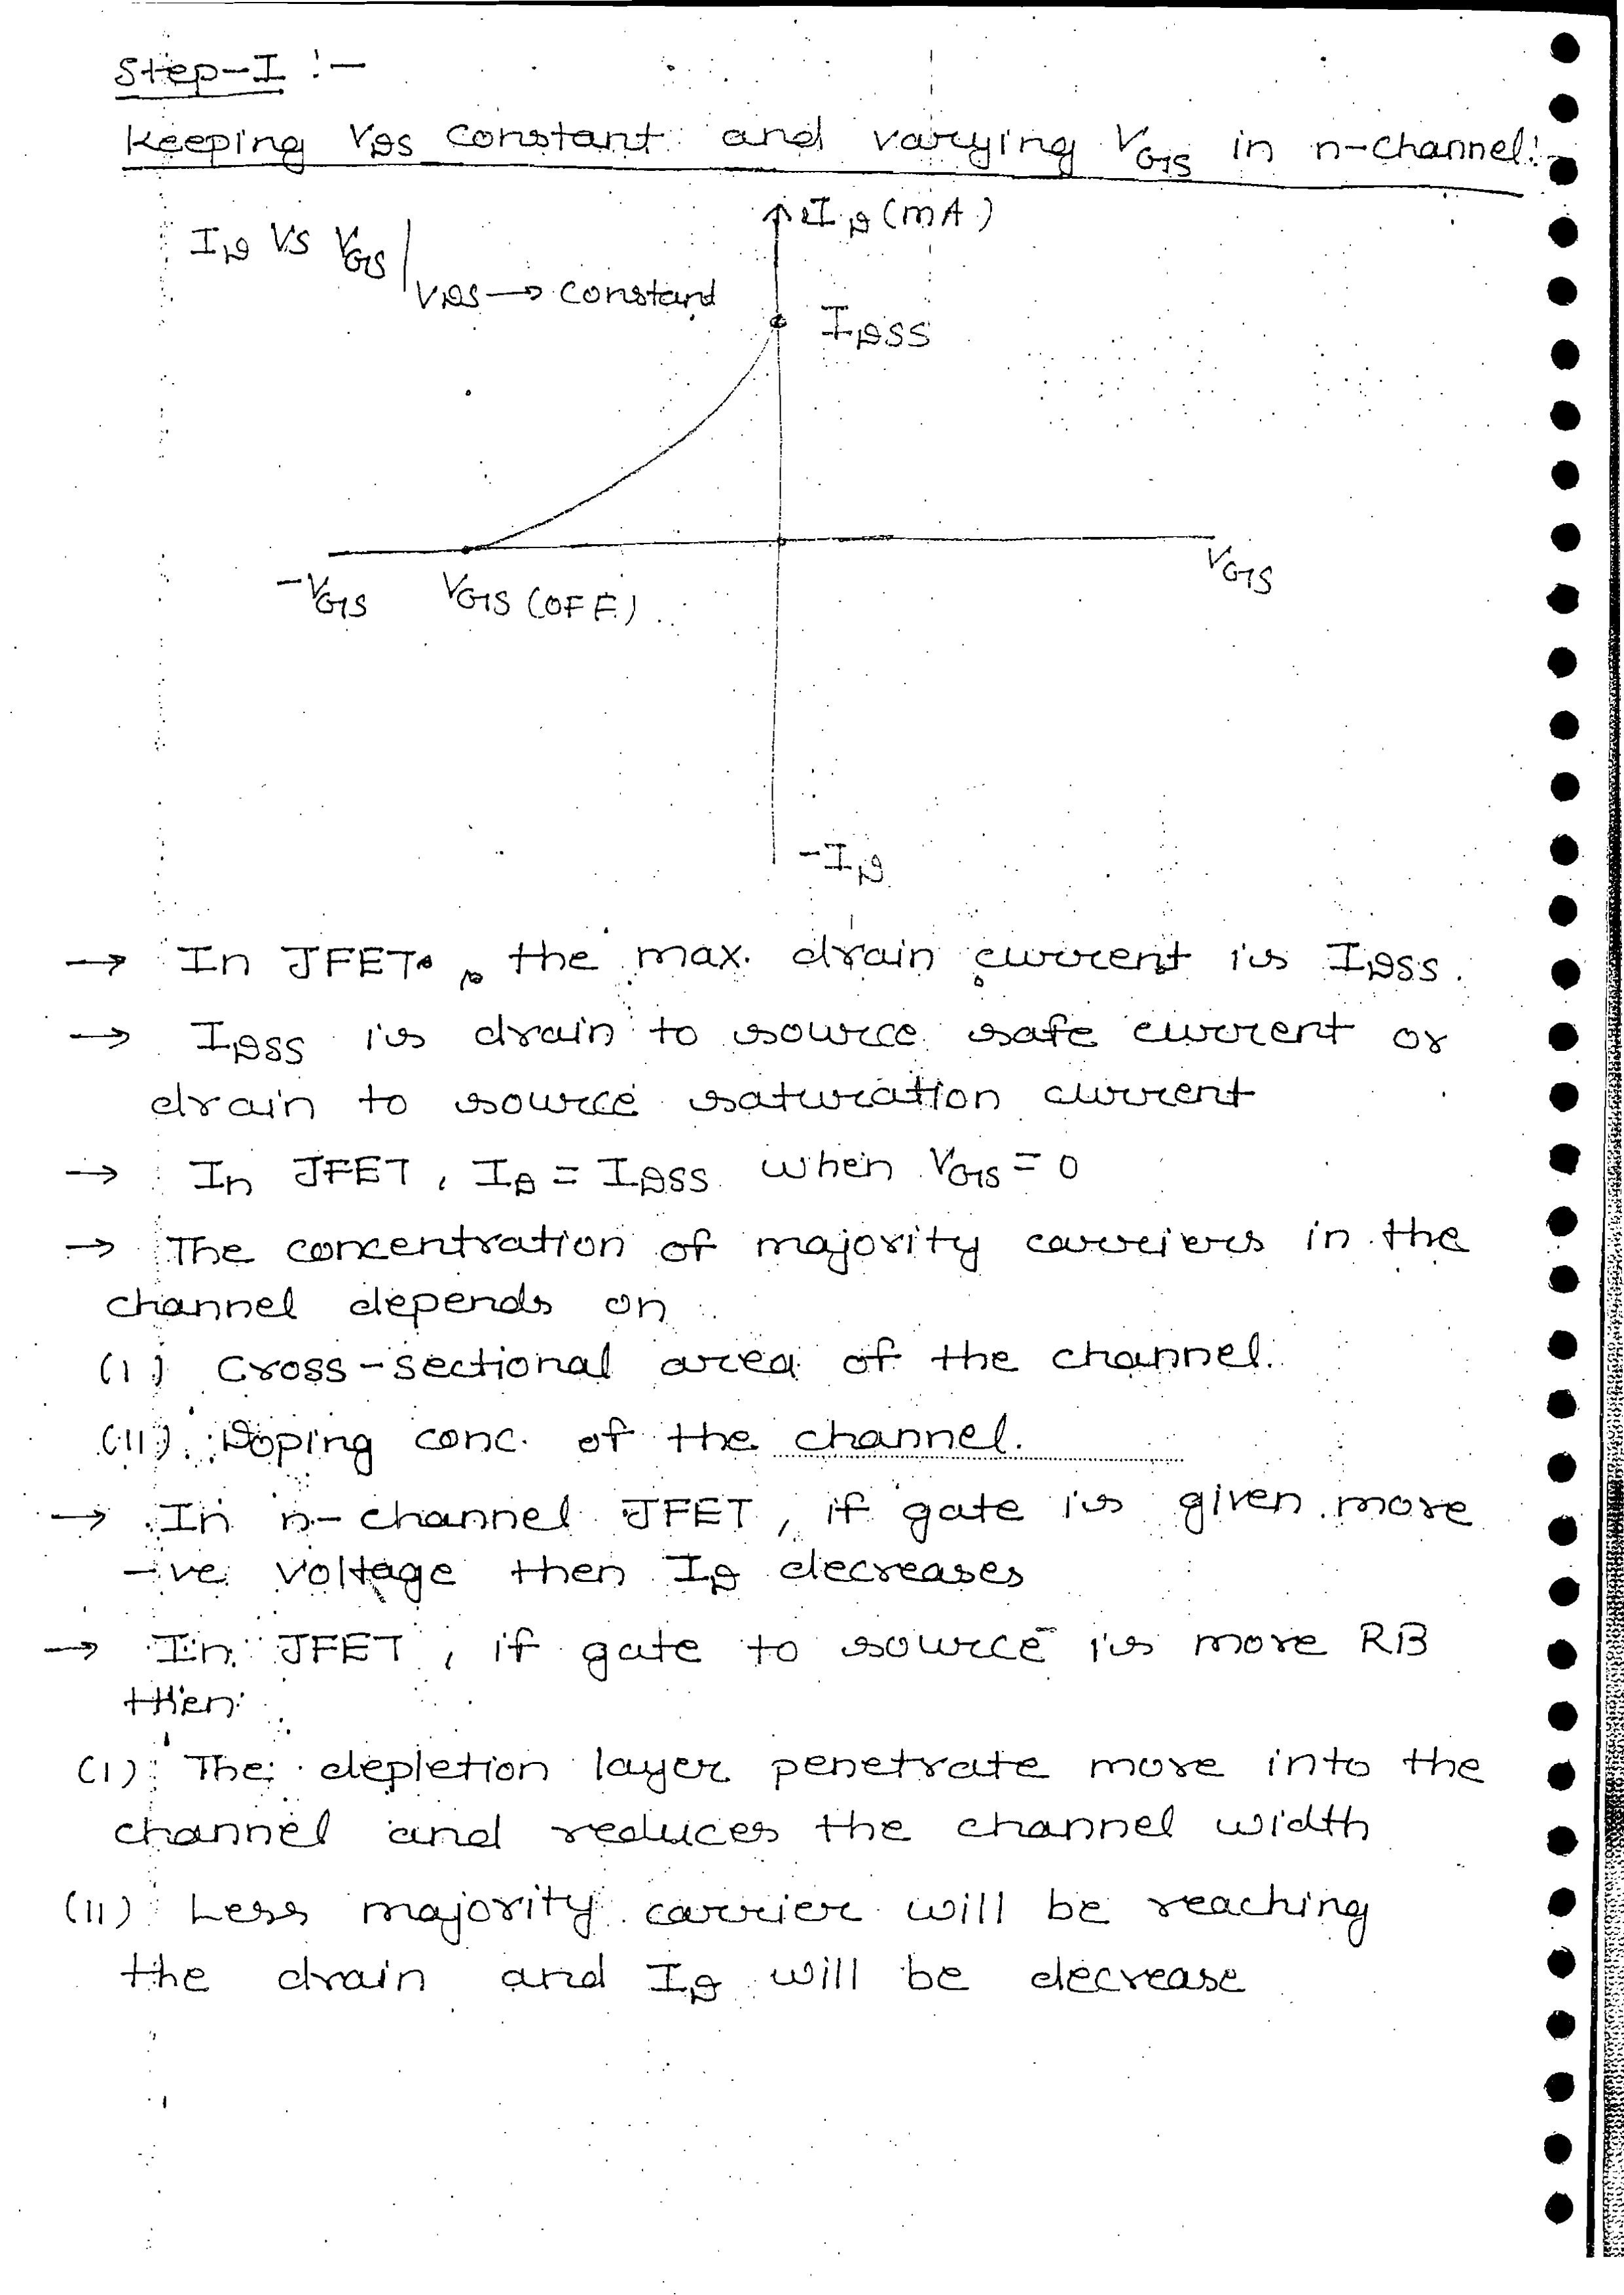 Step-I :-
Keeping VDS constant and varying VGS in n-channel:-
ID (mA)
ID VS VGS |
VDS → constand
IDSS
-VGS
VGS (OFF)
VGS
-ID
→ In JFET, the max. drain current is IDSS.
→ IDSS is drain to source safe current or
drain to source saturation current
→ In JFET, ID = IDSS when VGS = 0
→ The concentration of majority carriers in the
channel depends on
(I) Cross-sectional area of the channel.
(II) Doping conc. of the channel.
→ In n-channel JFET, if gate is given more
-ve voltage then ID decreases
→ In JFET, if gate to source is more RB
then
(I) The depletion layer penetrate more into the
channel and reduces the channel width
(II) Less majority carrier will be reaching
the drain and ID will be decrease